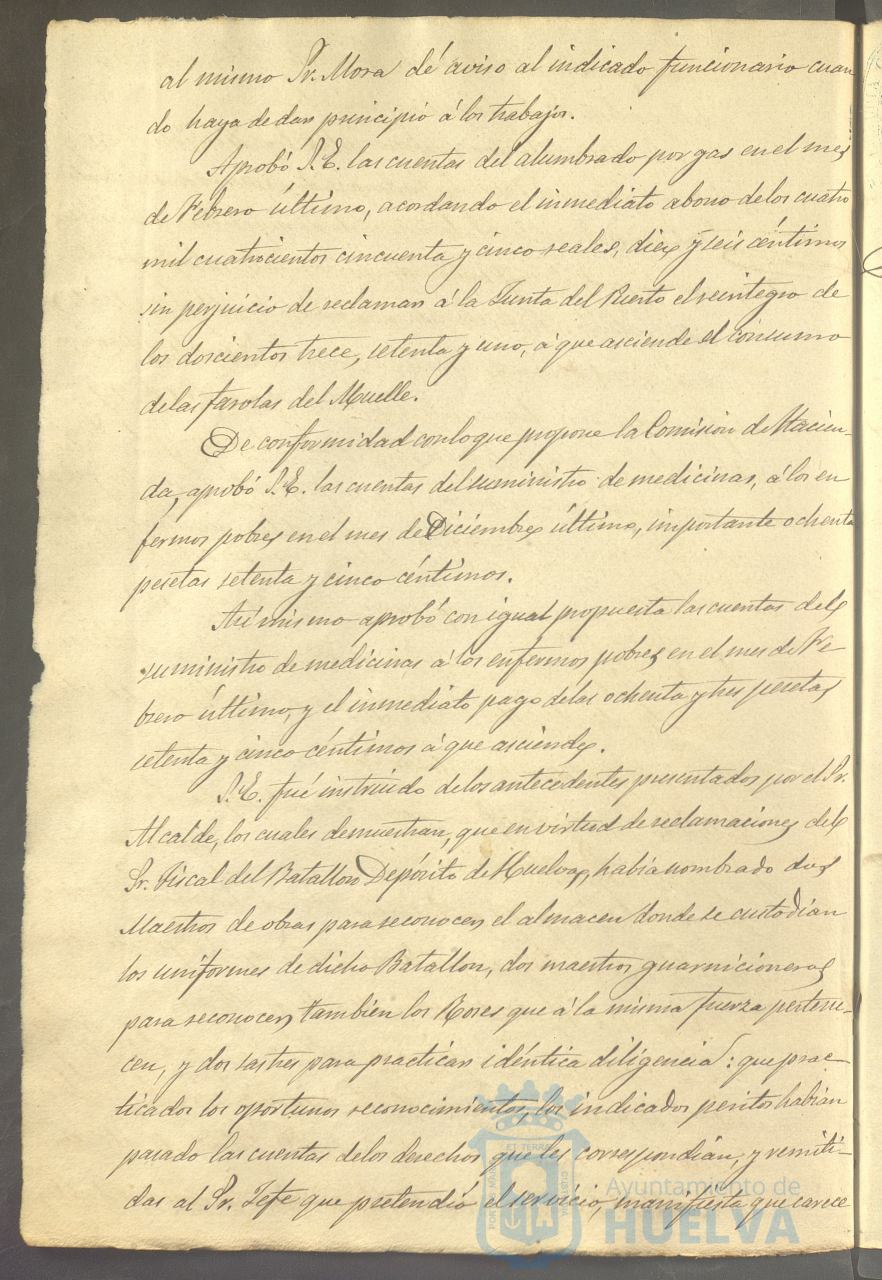 al mismo Sr. Mora dé aviso al indicado funcionario cuan
do haya de dar principio á los trabajos.
Aprobó S.E. las cuentas del alumbrado por gas en el mes
de Febrero último, acordando el inmediato abono de los cuatro
mil cuatrocientos cincuenta y cinco reales, diez y seis céntimos
sin perjuicio de reclamar á la Junta del Puerto el reintegro de
los doscientos trece, setenta y uno, á que asciende el consumo
de las farolas del Muelle.
De conformidad con lo que propone la Comisión de Hacien-
da, aprobó S.E. las cuentas del suministro de medicinas, á los en
fermos pobres en el mes de Diciembre último, importante ochenta
pesetas setenta y cinco céntimos.
Así mismo aprobó con igual propuesta las cuentas del
suministro de medicinas á los enfermos pobres en el mes de Fe
brero último, y el inmediato pago de las ochenta y tres pesetas
setenta y cinco céntimos á que asciende.
S.E. fué instruido de los antecedentes presentados por el Sr.
Alcalde, los cuales demuestran, que en virtud de reclamaciones del
Sr. Fiscal del Batallon Depósito de Huelva, había nombrado dos
Maestros de obras para reconocer el almacen donde se custodian
los uniformes de dicho Batallon, dos maestros guarnicioneros
para reconocer también los Roses que á la misma fuerza pertene-
cen, y dos sastres para practicar idéntica diligencia: que prac-
ticados los oportunos reconocimientos, los indicados peritos habían
pasado las cuentas de los derechos que les correspondían, y remiti-
das al Sr. Jefe que pretendió el servicio, manifiesta que carece
Ayuntamiento de
HUELVA